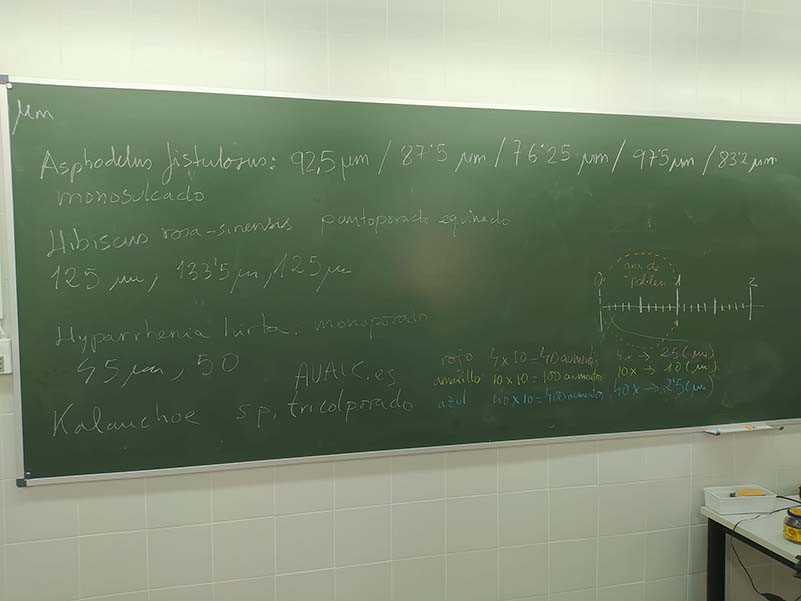 μm
Asphodelus fistulosus: 92,5 μm / 87'5 μm / 76'25 μm / 97'5 μm / 83'2 μm
monosulcado
Hibiscus rosa-sinensis pantoporado equinado
125 μm, 133'5 μm, 125 μm
Hyparrhenia hirta. monoporado
45 μm, 50
AVAIC.es
Kalanchoe sp. tricolporado
0 1 2
grano de
polen
rojo 4 x 10 = 40 aumentos 4x → 25 (μm)
amarillo 10 x 10 = 100 aumentos 10x → 10 (μm)
azul 40 x 10 = 400 aumentos 40x → 2'5 (μm)